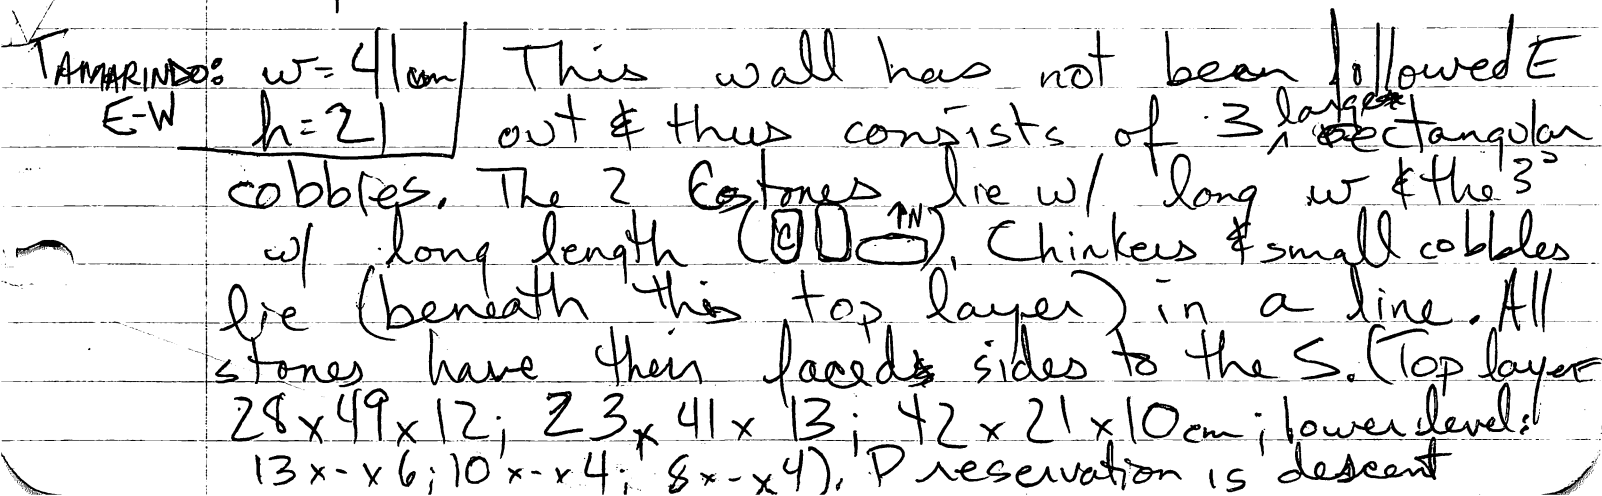 TAMARINDO: w=41cm This wall has not been followed E
E-W h=21 out & thus consists of 3 large rectangular
cobbles. The 2 E stones lie w/ long w & the 3°
w/ long length (C ↑N). Chinkers & small cobbles
lie (beneath this top layer) in a line. All
stones have their faced sides to the S. (Top layer
28x49x12; 23x41x13; 42x21x10cm; lower level:
13x-x6; 10x-x4; 8x-x4). Preservation is descent